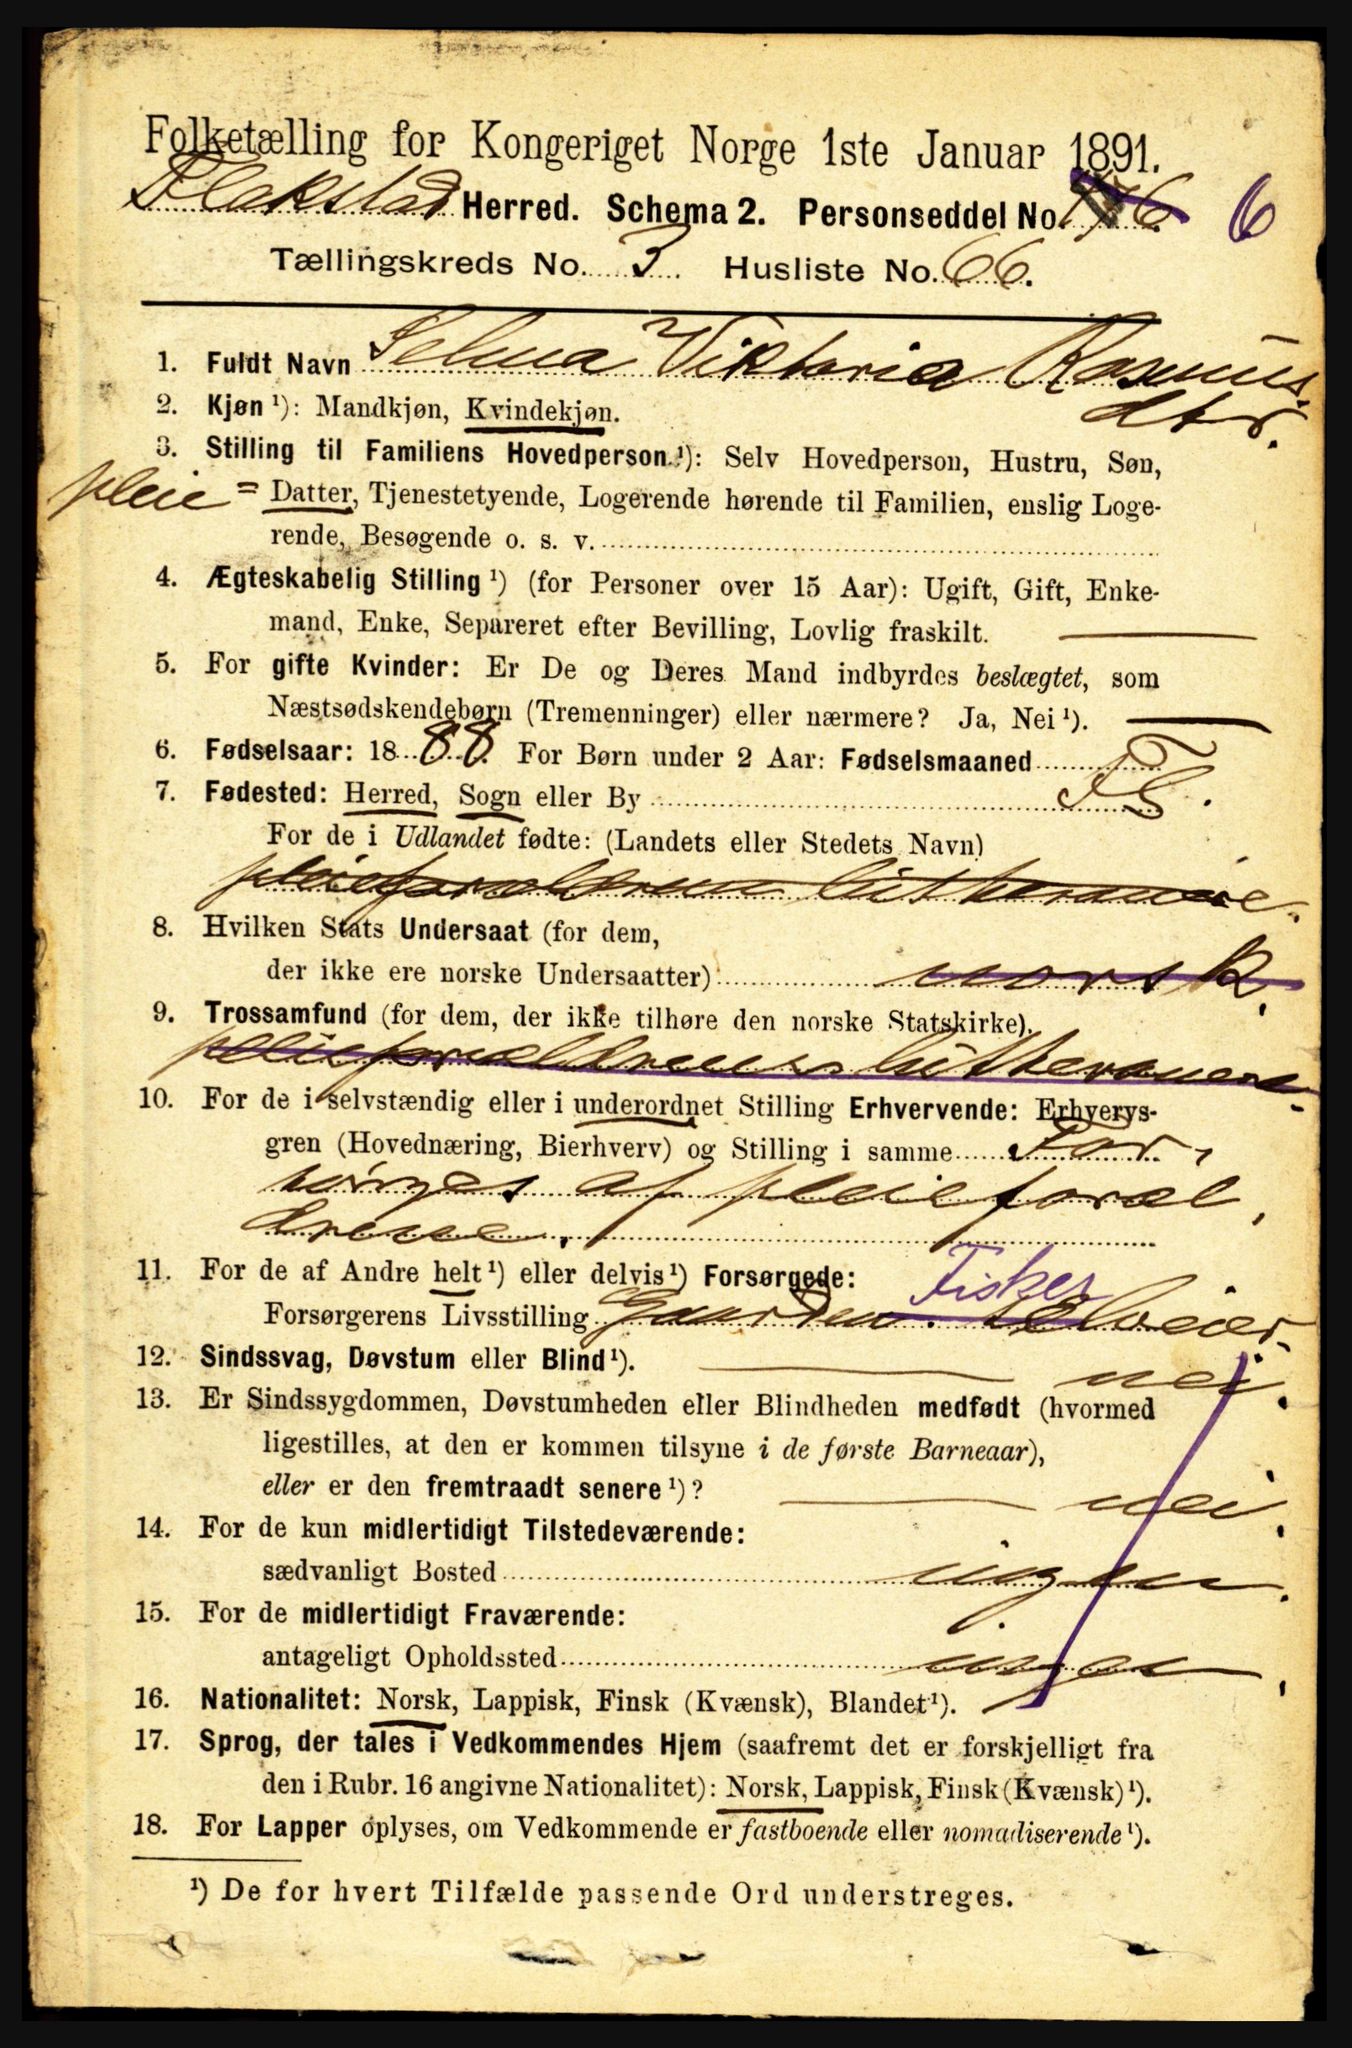 Folketælling for Kongeriget Norge 1ste Januar 1891.
Flakstad Herred. Schema 2. Personseddel No. 6
Tællingskreds No. 3 Husliste No. 66.
1. Fuldt Navn Selma Viktoria Rasmus
dtr.
2. Kjøn ¹): Mandkjøn, Kvindekjøn.
3. Stilling til Familiens Hovedperson ¹): Selv Hovedperson, Hustru, Søn,
pleie = Datter, Tjenestetyende, Logerende hørende til Familien, enslig Loge-
rende, Besøgende o. s. v.
4. Ægteskabelig Stilling ¹) (for Personer over 15 Aar): Ugift, Gift, Enke-
mand, Enke, Separeret efter Bevilling, Lovlig fraskilt.
5. For gifte Kvinder: Er De og Deres Mand indbyrdes beslægtet, som
Næstsødskendebørn (Tremenninger) eller nærmere? Ja, Nei ¹).
6. Fødselsaar: 1888. For Børn under 2 Aar: Fødselsmaaned
7. Fødested: Herred, Sogn eller By
For de i Udlandet fødte: (Landets eller Stedets Navn)
pleieforældrene lutheranere.
8. Hvilken Stats Undersaat (for dem,
der ikke ere norske Undersaatter) norsk.
9. Trossamfund (for dem, der ikke tilhøre den norske Statskirke).
pleieforældrenes lutheranere.
10. For de i selvstændig eller i underordnet Stilling Erhvervende: Erhvervs-
gren (Hovednæring, Bierhverv) og Stilling i samme For,
sørges af pleieforæl,
drene.
11. For de af Andre helt ¹) eller delvis ¹) Forsørgede: Fisker
Forsørgerens Livsstilling Selveier.
12. Sindssvag, Døvstum eller Blind ¹). nei.
13. Er Sindssygdommen, Døvstumheden eller Blindheden medfødt (hvormed
ligestilles, at den er kommen tilsyne i de første Barneaar),
eller er den fremtraadt senere ¹)? nei.
14. For de kun midlertidigt Tilstedeværende:
sædvanligt Bosted ingen.
15. For de midlertidigt Fraværende:
antageligt Opholdssted ingen.
16. Nationalitet: Norsk, Lappisk, Finsk (Kvænsk), Blandet ¹).
17. Sprog, der tales i Vedkommendes Hjem (saafremt det er forskjelligt fra
den i Rubr. 16 angivne Nationalitet): Norsk, Lappisk, Finsk (Kvænsk) ¹).
18. For Lapper oplyses, om Vedkommende er fastboende eller nomadiserende ¹).
¹) De for hvert Tilfælde passende Ord understreges.